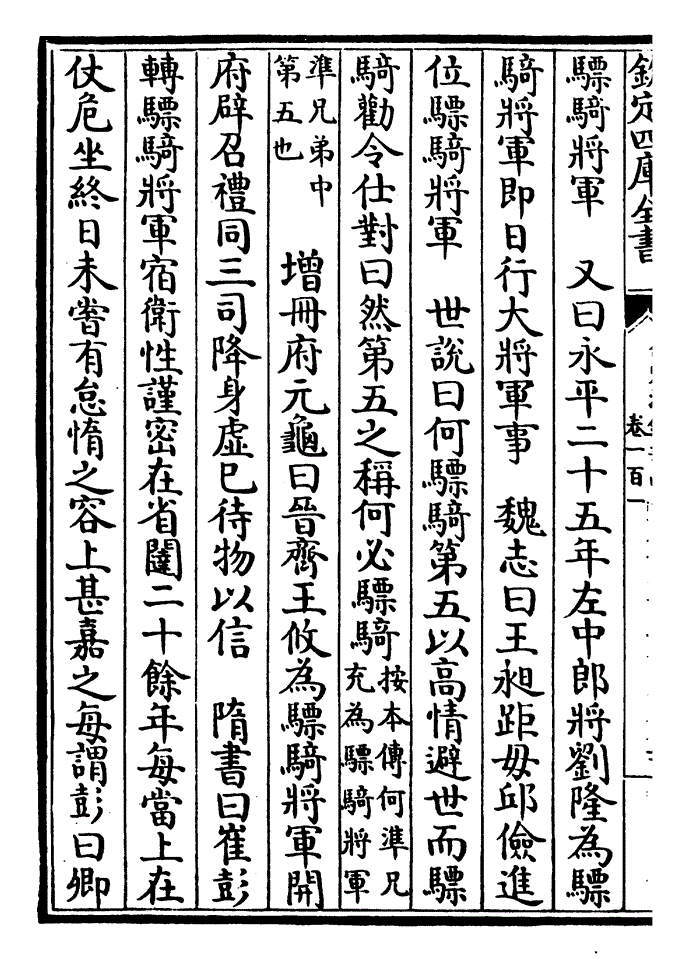 欽定四庫全書
卷一百一
驃騎將軍　又曰永平二十五年左中郎將劉隆為驃
騎將軍即日行大將軍事　魏志曰王昶距毋邱儉進
位驃騎將軍　世說曰何驃騎第五以高情避世而驃
騎勸令仕對曰然第五之稱何必驃騎按本傳何準兄
充為驃騎將軍
準兄弟中
第五也　增冊府元龜曰晉齊王攸為驃騎將軍開
府辟召禮同三司降身虛已待物以信　隋書曰崔彭
轉驃騎將軍宿衛性謹密在省闥二十餘年每當上在
仗危坐終日未嘗有怠惰之容上甚嘉之每謂彭曰卿